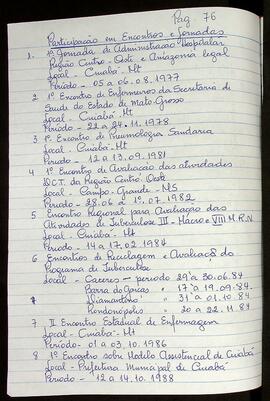 Pag. 76
Participação em Encontros e Jornadas
1. 1ª Jornada de Administração Hospitalar
Região Centro-Oeste e Amazonia legal
Local - Cuiabá-Mt
Período - 05 a 06.08.1977
2 1º Encontro de Enfermeiros da Secretaria de
Saude do Estado de Mato Grosso
Local - Cuiabá-Mt
Período - 22 a 24.11.1978
3 1º Encontro de Pneumologia Sanitaria
Local - Cuiabá-Mt
Período - 12 a 13.09.1981
4 1º Encontro de Avaliação das atividades
D.C.T. da Região Centro Oeste
Local - Campo-Grande-MS
Período - 28.06 a 1º.07.1982
5 Encontro Regional para Avaliação das
Atividades de Tuberculose III - Macro e VIII M.R.N
Local - Cuiabá-Mt
Período - 14 a 17.02.1984
6 Encontros de Reciclagem e Avaliação do
Programa de Tuberculose
Local - Caceres - período 29 a 30.06.84
Barra do Garças " 17 a 19.09.84
Diamantino " 31 a 01.10.84
Rondonópolis " 20 a 22.11.84
7 II Encontro Estadual de Enfermagem
Local - Cuiabá-Mt
Período - 01 a 03.10.1986
8 1º Encontro sobre Modelo Assistencial de Cuiabá
Local - Prefeitura Municipal de Cuiabá
Período - 12 a 14.10.1988